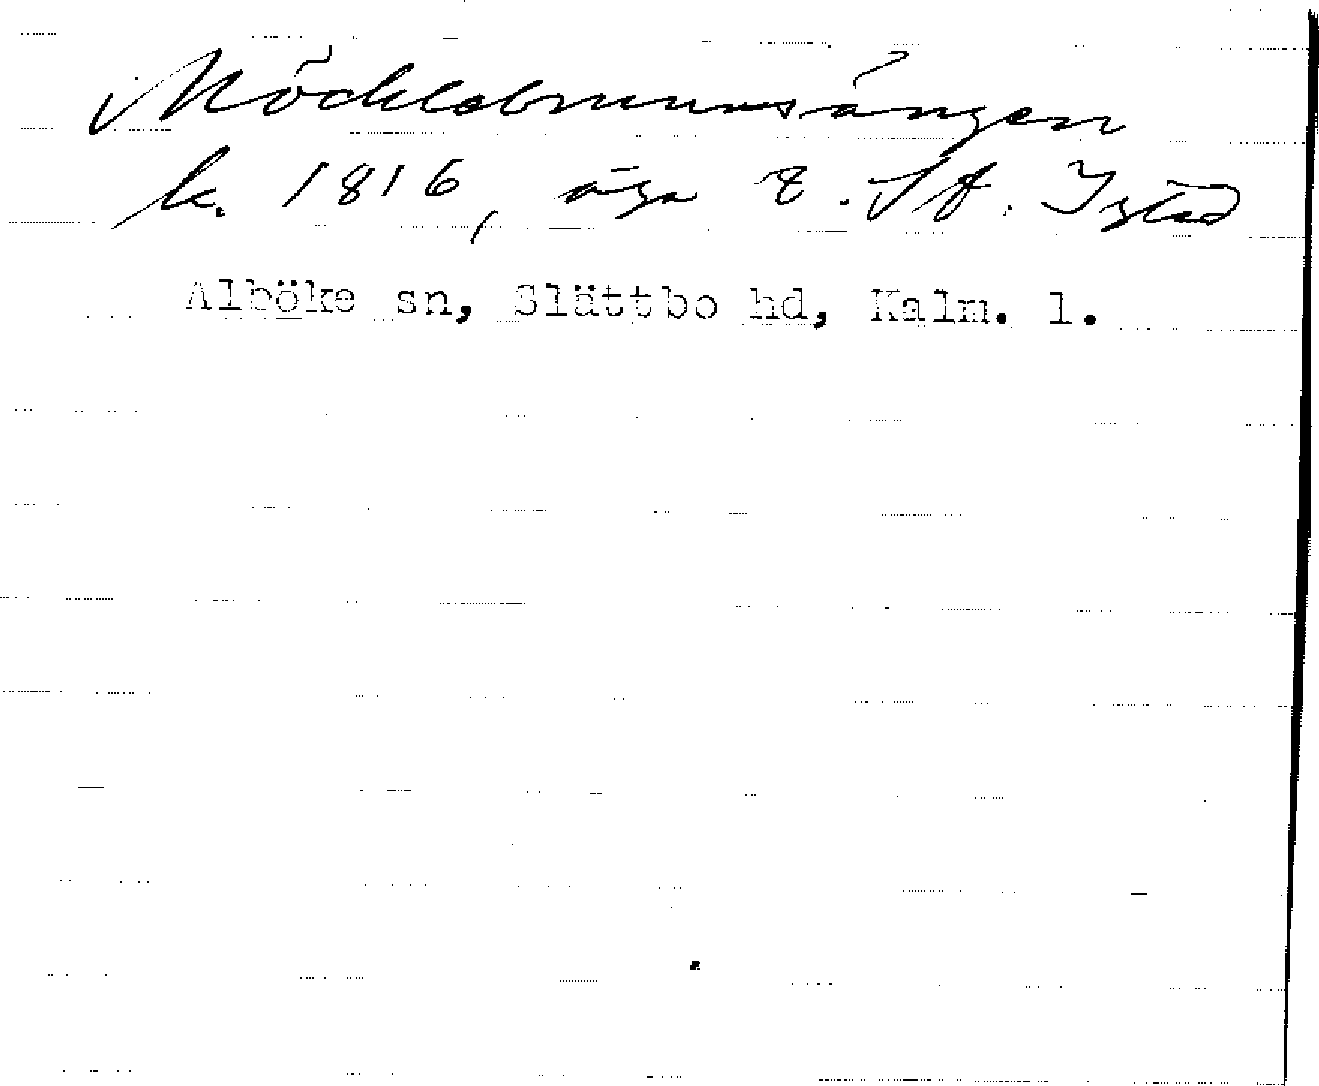 Möcklebrunnsängen
k. 1816, äga t. St. Istad
Alböke sn, Slättbo hd, Kalm. l.